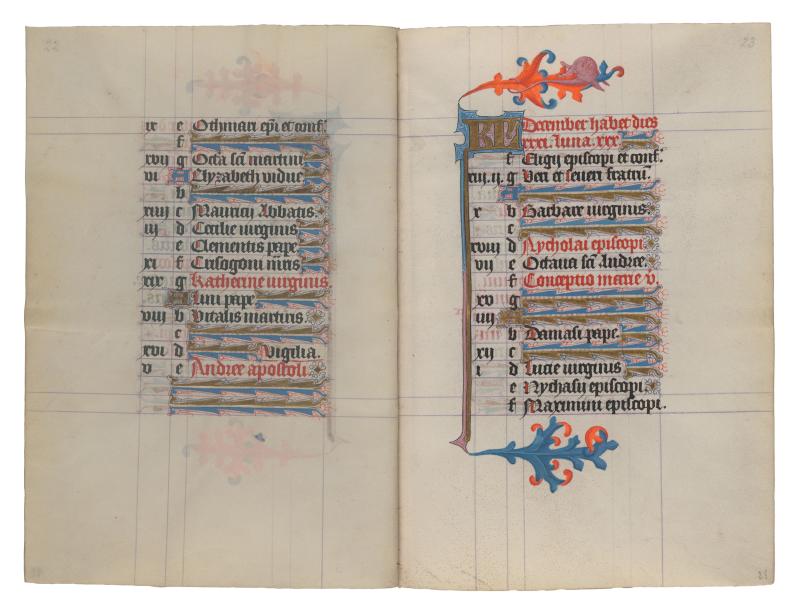 22
ix e Othmari ep̄i et conf.
f
xvii g Octā scī martini
vi A Elyzabeth vidue
b
xiiii c Mauricij Abbatis.
iii d Cecilie virginis
e Clementis pape
xi f Crisogoni m̄ris
xix g Katherine virginis
A Lini pape
viii b Vitalis martiris.
c
xvi d Vigilia.
v e Andree apostoli
23
KL December habet dies
xxxi. luna. xxx
f Eligij episcopi et conf.
xiii. ii. g Veri et seueri fratrū.
A
x b Barbare virginis.
c
xviii d Nycholai episcopi
vii e Octaua scī Andree.
f Conceptio marie v.
xv g
iiii A
b Damasi pape.
xij c
i d Lucie virginis
e Nychasij episcopi.
f Maximini episcopi.